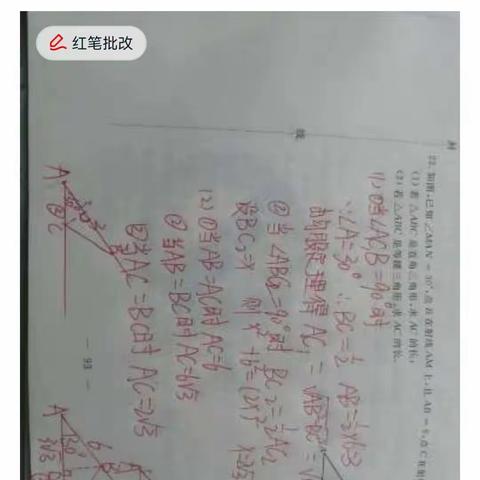 红笔批改
封
线
22. 如图,已知∠MAN=30°,点B在射线AM上,且AB=6,点C在射
(1) 若△ABC是直角三角形,求AC的长;
(2) 若△ABC是等腰三角形,求AC的长.
(1) ①当∠ACB=90°时
∵∠A=30° ∴BC=½AB=½×6=3
由勾股定理得 AC₁=√AB²-BC²=√
②当∠ABC₂=90°时 BC₂=½AC₂
设BC₂=x 则x²+6²=(2x)² x=2√3
(2) ①当AB=AC时 AC=6
②当AB=BC时 AC=6√3
③当AC=BC时 AC=2√3
A
30°
C
— 93 —
A
30°
6
3√3